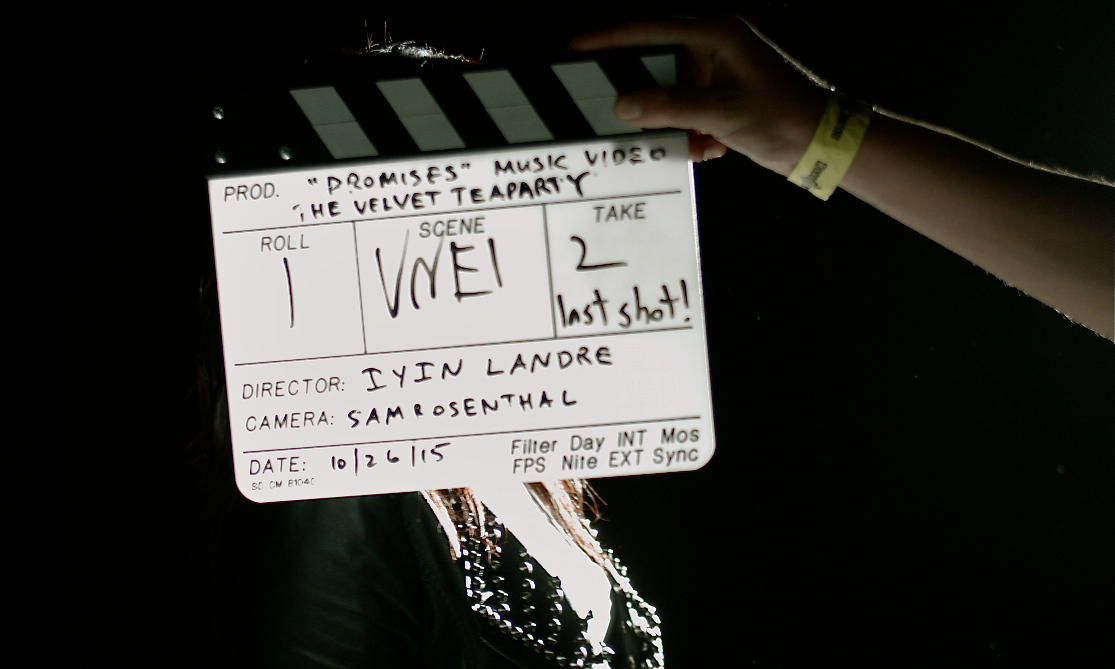 PROD. "PROMISES" MUSIC VIDEO
THE VELVET TEAPARTY
ROLL SCENE TAKE
1 VNE1 2
last shot!
DIRECTOR: IYIN LANDRE
CAMERA: SAM ROSENTHAL
DATE: 10/26/15
Filter Day INT Mos
FPS Nite EXT Sync